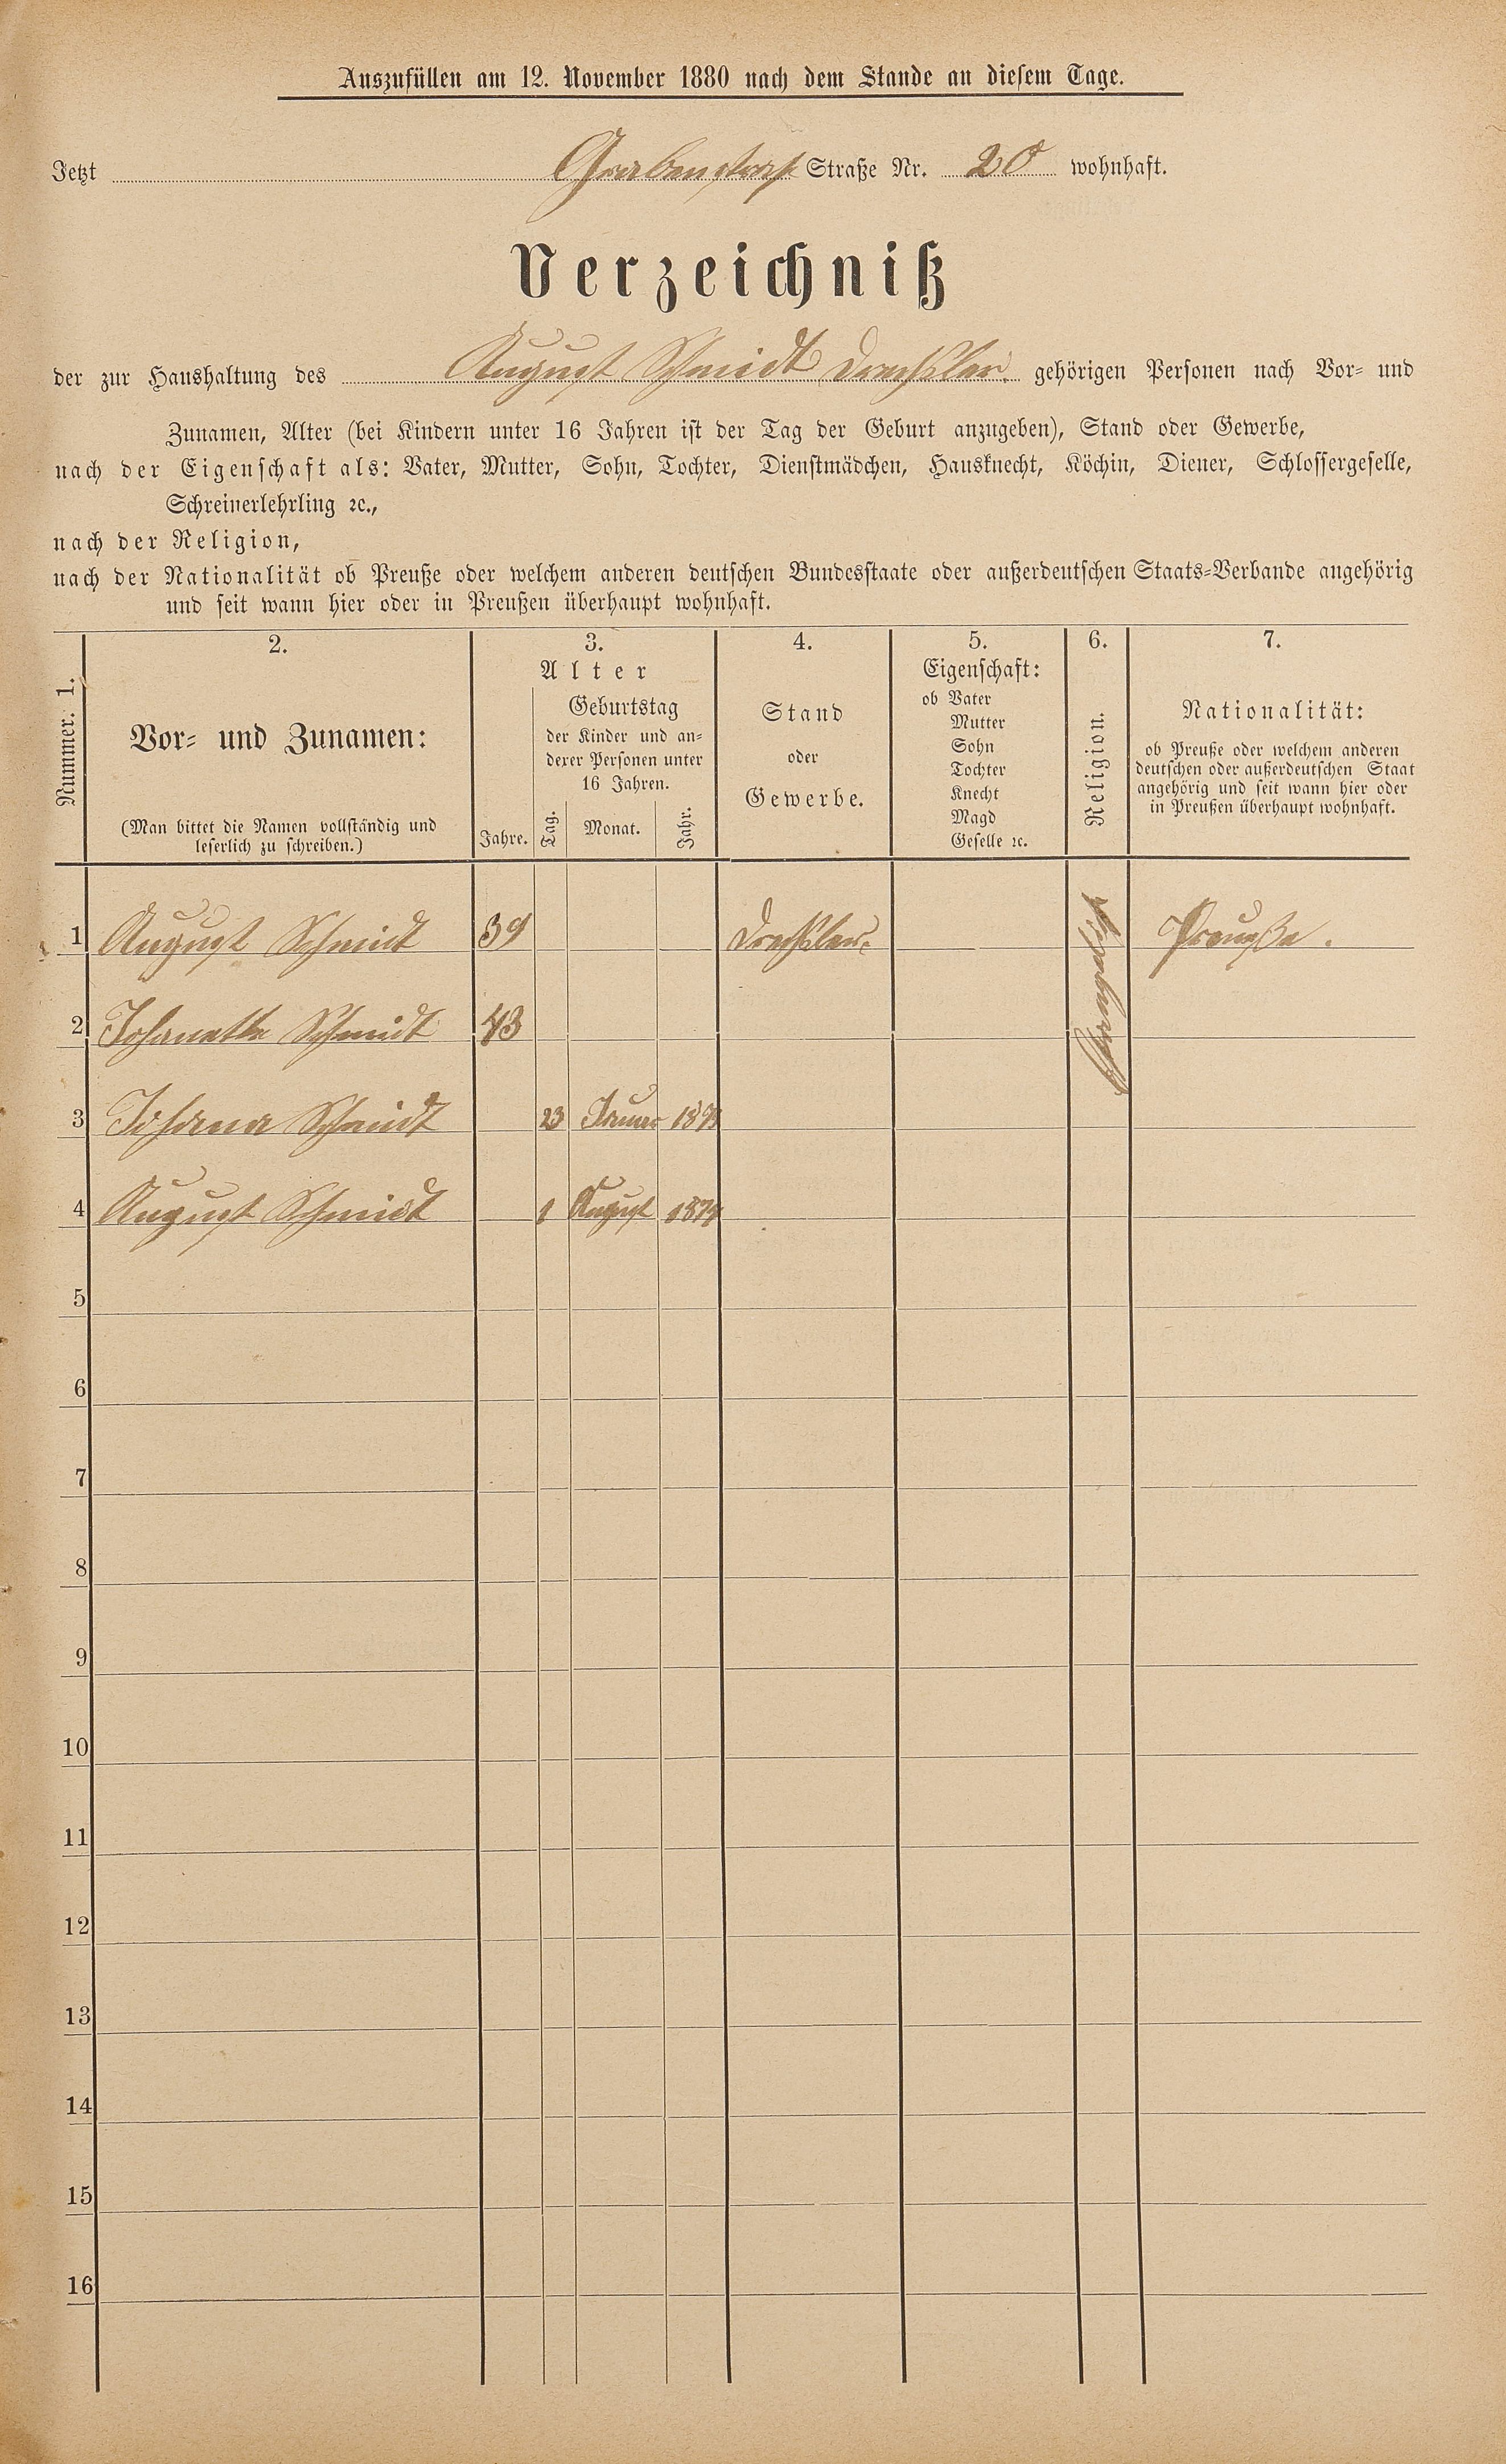 Auszufüllen am 12. November 1880 nach dem Stande an diesem Tage.
Jetzt Grabenstraß Straße Nr. 20 wohnhaft.
Verzeichniß
der zur Haushaltung des August Schmidt Drechsler gehörigen Personen nach Vor- und
Zunamen, Alter (bei Kindern unter 16 Jahren ist der Tag der Geburt anzugeben), Stand oder Gewerbe,
nach der Eigenschaft als: Vater, Mutter, Sohn, Tochter, Dienstmädchen, Hausknecht, Köchin, Diener, Schlossergeselle,
Schreinerlehrling ꝛc.,
nach der Religion,
nach der Nationalität ob Preuße oder welchem anderen deutschen Bundesstaate oder außerdeutschen Staats-Verbande angehörig
und seit wann hier oder in Preußen überhaupt wohnhaft.
Nummer. 1.
2.
Vor- und Zunamen:
(Man bittet die Namen vollständig und
leserlich zu schreiben.)
3.
Alter
Jahre.
Geburtstag
der Kinder und an-
derer Personen unter
16 Jahren.
Tag. Monat. Jahr.
4.
Stand
oder
Gewerbe.
5.
Eigenschaft:
ob Vater
Mutter
Sohn
Tochter
Knecht
Magd
Geselle ꝛc.
6.
Religion.
7.
Nationalität:
ob Preuße oder welchem anderen
deutschen oder außerdeutschen Staat
angehörig und seit wann hier oder
in Preußen überhaupt wohnhaft.
1 August Schmidt 39 Drechsler. Preuße.
2 Johanette Schmidt 43
3 Johana Schmidt 23 Januar
4 August Schmidt 1 August 1874
5
6
7
8
9
10
11
12
13
14
15
16